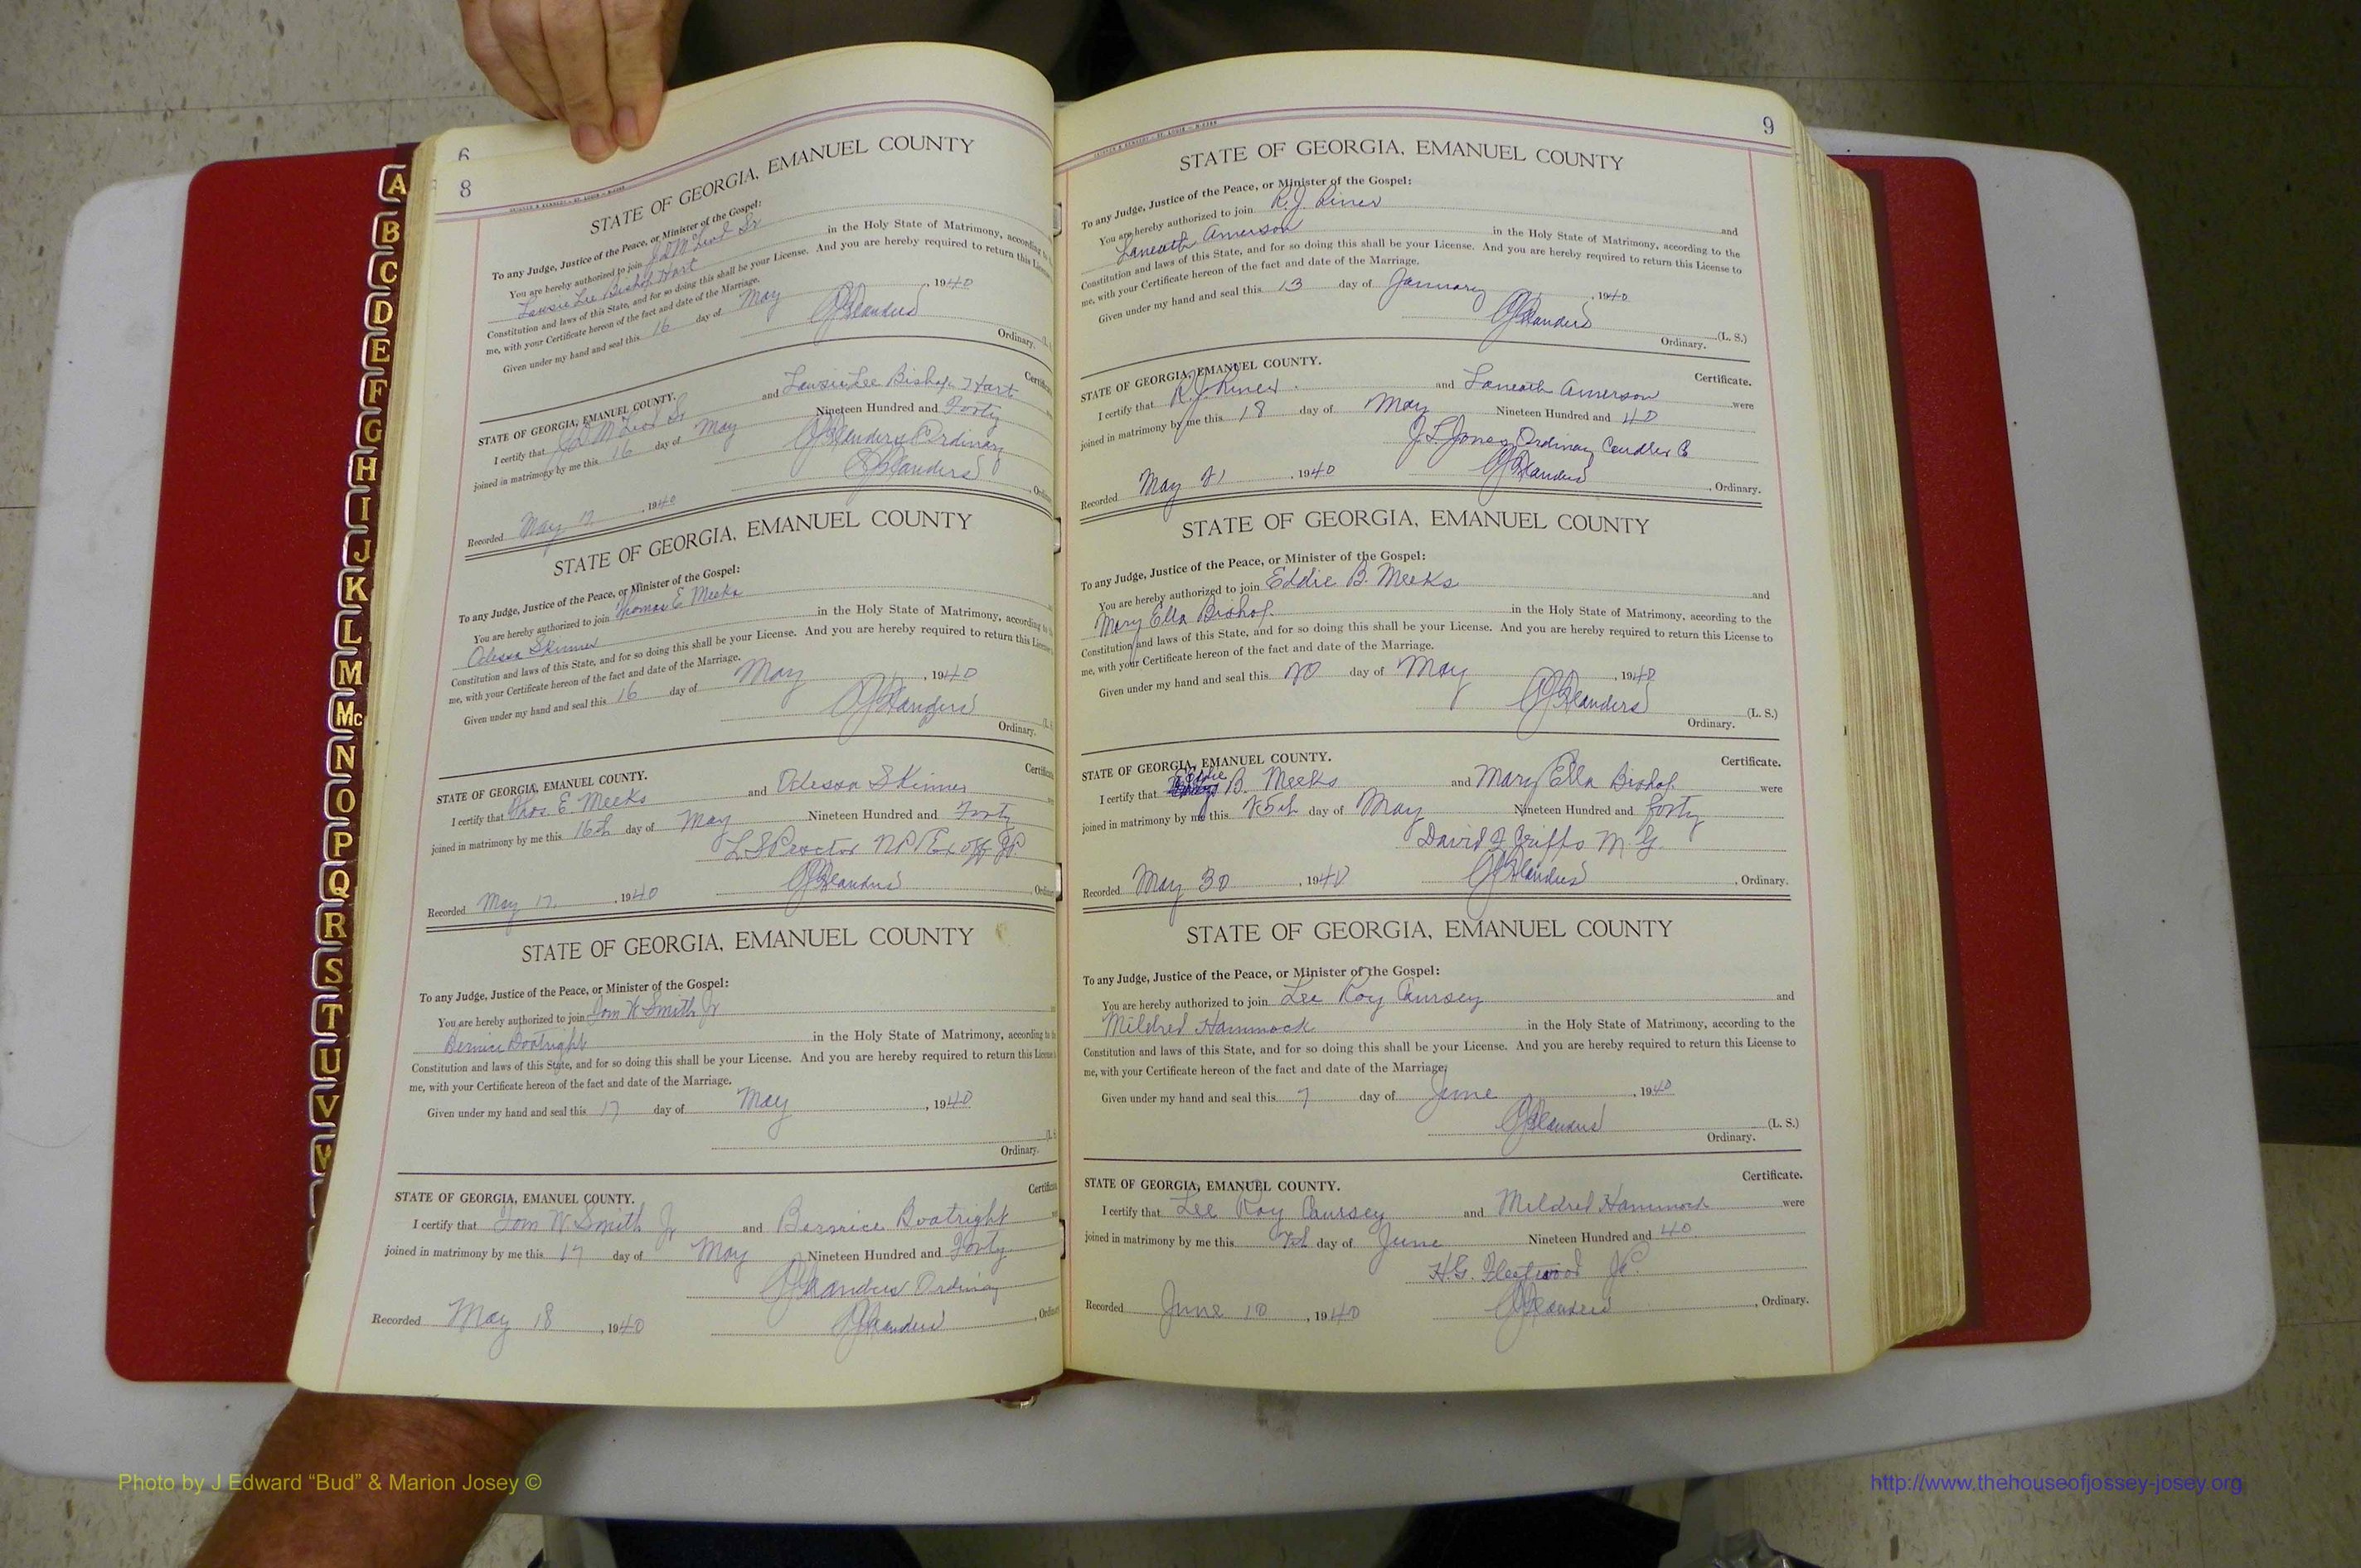 6
8
STATE OF GEORGIA, EMANUEL COUNTY
To any Judge, Justice of the Peace, or Minister of the Gospel:
You are hereby authorized to join J D McLeod Sr
Lee Bishop Hart in the Holy State of Matrimony, according to
Constitution and laws of this State, and for so doing this shall be your License. And you are hereby required to return this License
me, with your Certificate hereon of the fact and date of the Marriage.
Given under my hand and seal this 16 day of May , 1940
Ordinary.
STATE OF GEORGIA, EMANUEL COUNTY.
I certify that J D McLeod Sr and Lee Bishop Hart
joined in matrimony by me this 16 day of May Nineteen Hundred and Forty
Ordinary
Recorded May 17 , 1940
STATE OF GEORGIA, EMANUEL COUNTY
To any Judge, Justice of the Peace, or Minister of the Gospel:
You are hereby authorized to join Thomas E Meeks
Odessa Skinner in the Holy State of Matrimony, according to
Constitution and laws of this State, and for so doing this shall be your License. And you are hereby required to return this License
me, with your Certificate hereon of the fact and date of the Marriage.
Given under my hand and seal this 16 day of May , 1940
Ordinary.
STATE OF GEORGIA, EMANUEL COUNTY.
I certify that Thos. E. Meeks and Odessa Skinner
joined in matrimony by me this 16th day of May Nineteen Hundred and Forty
L S Proctor N P & Ex off J P
Recorded May 17 , 1940
STATE OF GEORGIA, EMANUEL COUNTY
To any Judge, Justice of the Peace, or Minister of the Gospel:
You are hereby authorized to join Tom W Smith Jr
Bernice Boatright in the Holy State of Matrimony, according to
Constitution and laws of this State, and for so doing this shall be your License. And you are hereby required to return this License
me, with your Certificate hereon of the fact and date of the Marriage.
Given under my hand and seal this 17 day of May , 1940
Ordinary.
STATE OF GEORGIA, EMANUEL COUNTY.
I certify that Tom W Smith Jr and Bernice Boatright
joined in matrimony by me this 17 day of May Nineteen Hundred and Forty
Ordinary
Recorded May 18 , 1940
9
STATE OF GEORGIA, EMANUEL COUNTY
To any Judge, Justice of the Peace, or Minister of the Gospel:
You are hereby authorized to join R. J. Riner and
Laneath Amerson in the Holy State of Matrimony, according to the
Constitution and laws of this State, and for so doing this shall be your License. And you are hereby required to return this License to
me, with your Certificate hereon of the fact and date of the Marriage.
Given under my hand and seal this 13 day of January , 1940
(L. S.)
Ordinary.
STATE OF GEORGIA, EMANUEL COUNTY. Certificate.
I certify that R. J. Riner and Laneath Amerson were
joined in matrimony by me this 18 day of May Nineteen Hundred and 40
J. L. Jones, Ordinary Candler Co
Recorded May 21 , 1940 , Ordinary.
STATE OF GEORGIA, EMANUEL COUNTY
To any Judge, Justice of the Peace, or Minister of the Gospel:
You are hereby authorized to join Eddie B. Meeks and
Mary Ella Bishop in the Holy State of Matrimony, according to the
Constitution and laws of this State, and for so doing this shall be your License. And you are hereby required to return this License to
me, with your Certificate hereon of the fact and date of the Marriage.
Given under my hand and seal this 20 day of May , 1940
(L. S.)
Ordinary.
STATE OF GEORGIA, EMANUEL COUNTY. Certificate.
I certify that Eddie B. Meeks and Mary Ella Bishop were
joined in matrimony by me this 25th day of May Nineteen Hundred and forty
David M. G.
Recorded May 30 , 1940 , Ordinary.
STATE OF GEORGIA, EMANUEL COUNTY
To any Judge, Justice of the Peace, or Minister of the Gospel:
You are hereby authorized to join Lee Roy Coursey and
Mildred Hammock in the Holy State of Matrimony, according to the
Constitution and laws of this State, and for so doing this shall be your License. And you are hereby required to return this License to
me, with your Certificate hereon of the fact and date of the Marriage.
Given under my hand and seal this 7 day of June , 1940
(L. S.)
Ordinary.
STATE OF GEORGIA, EMANUEL COUNTY. Certificate.
I certify that Lee Roy Coursey and Mildred Hammock were
joined in matrimony by me this 7th day of June Nineteen Hundred and 40
H. G. Fleetwood
Recorded June 10 , 1940 , Ordinary.
A
B
C
D
E
F
G
H
I
J
K
L
M
Mc
N
O
P
Q
R
S
T
U
V
W
Photo by J Edward “Bud” & Marion Josey ©
http://www.thehouseofjossey-josey.org